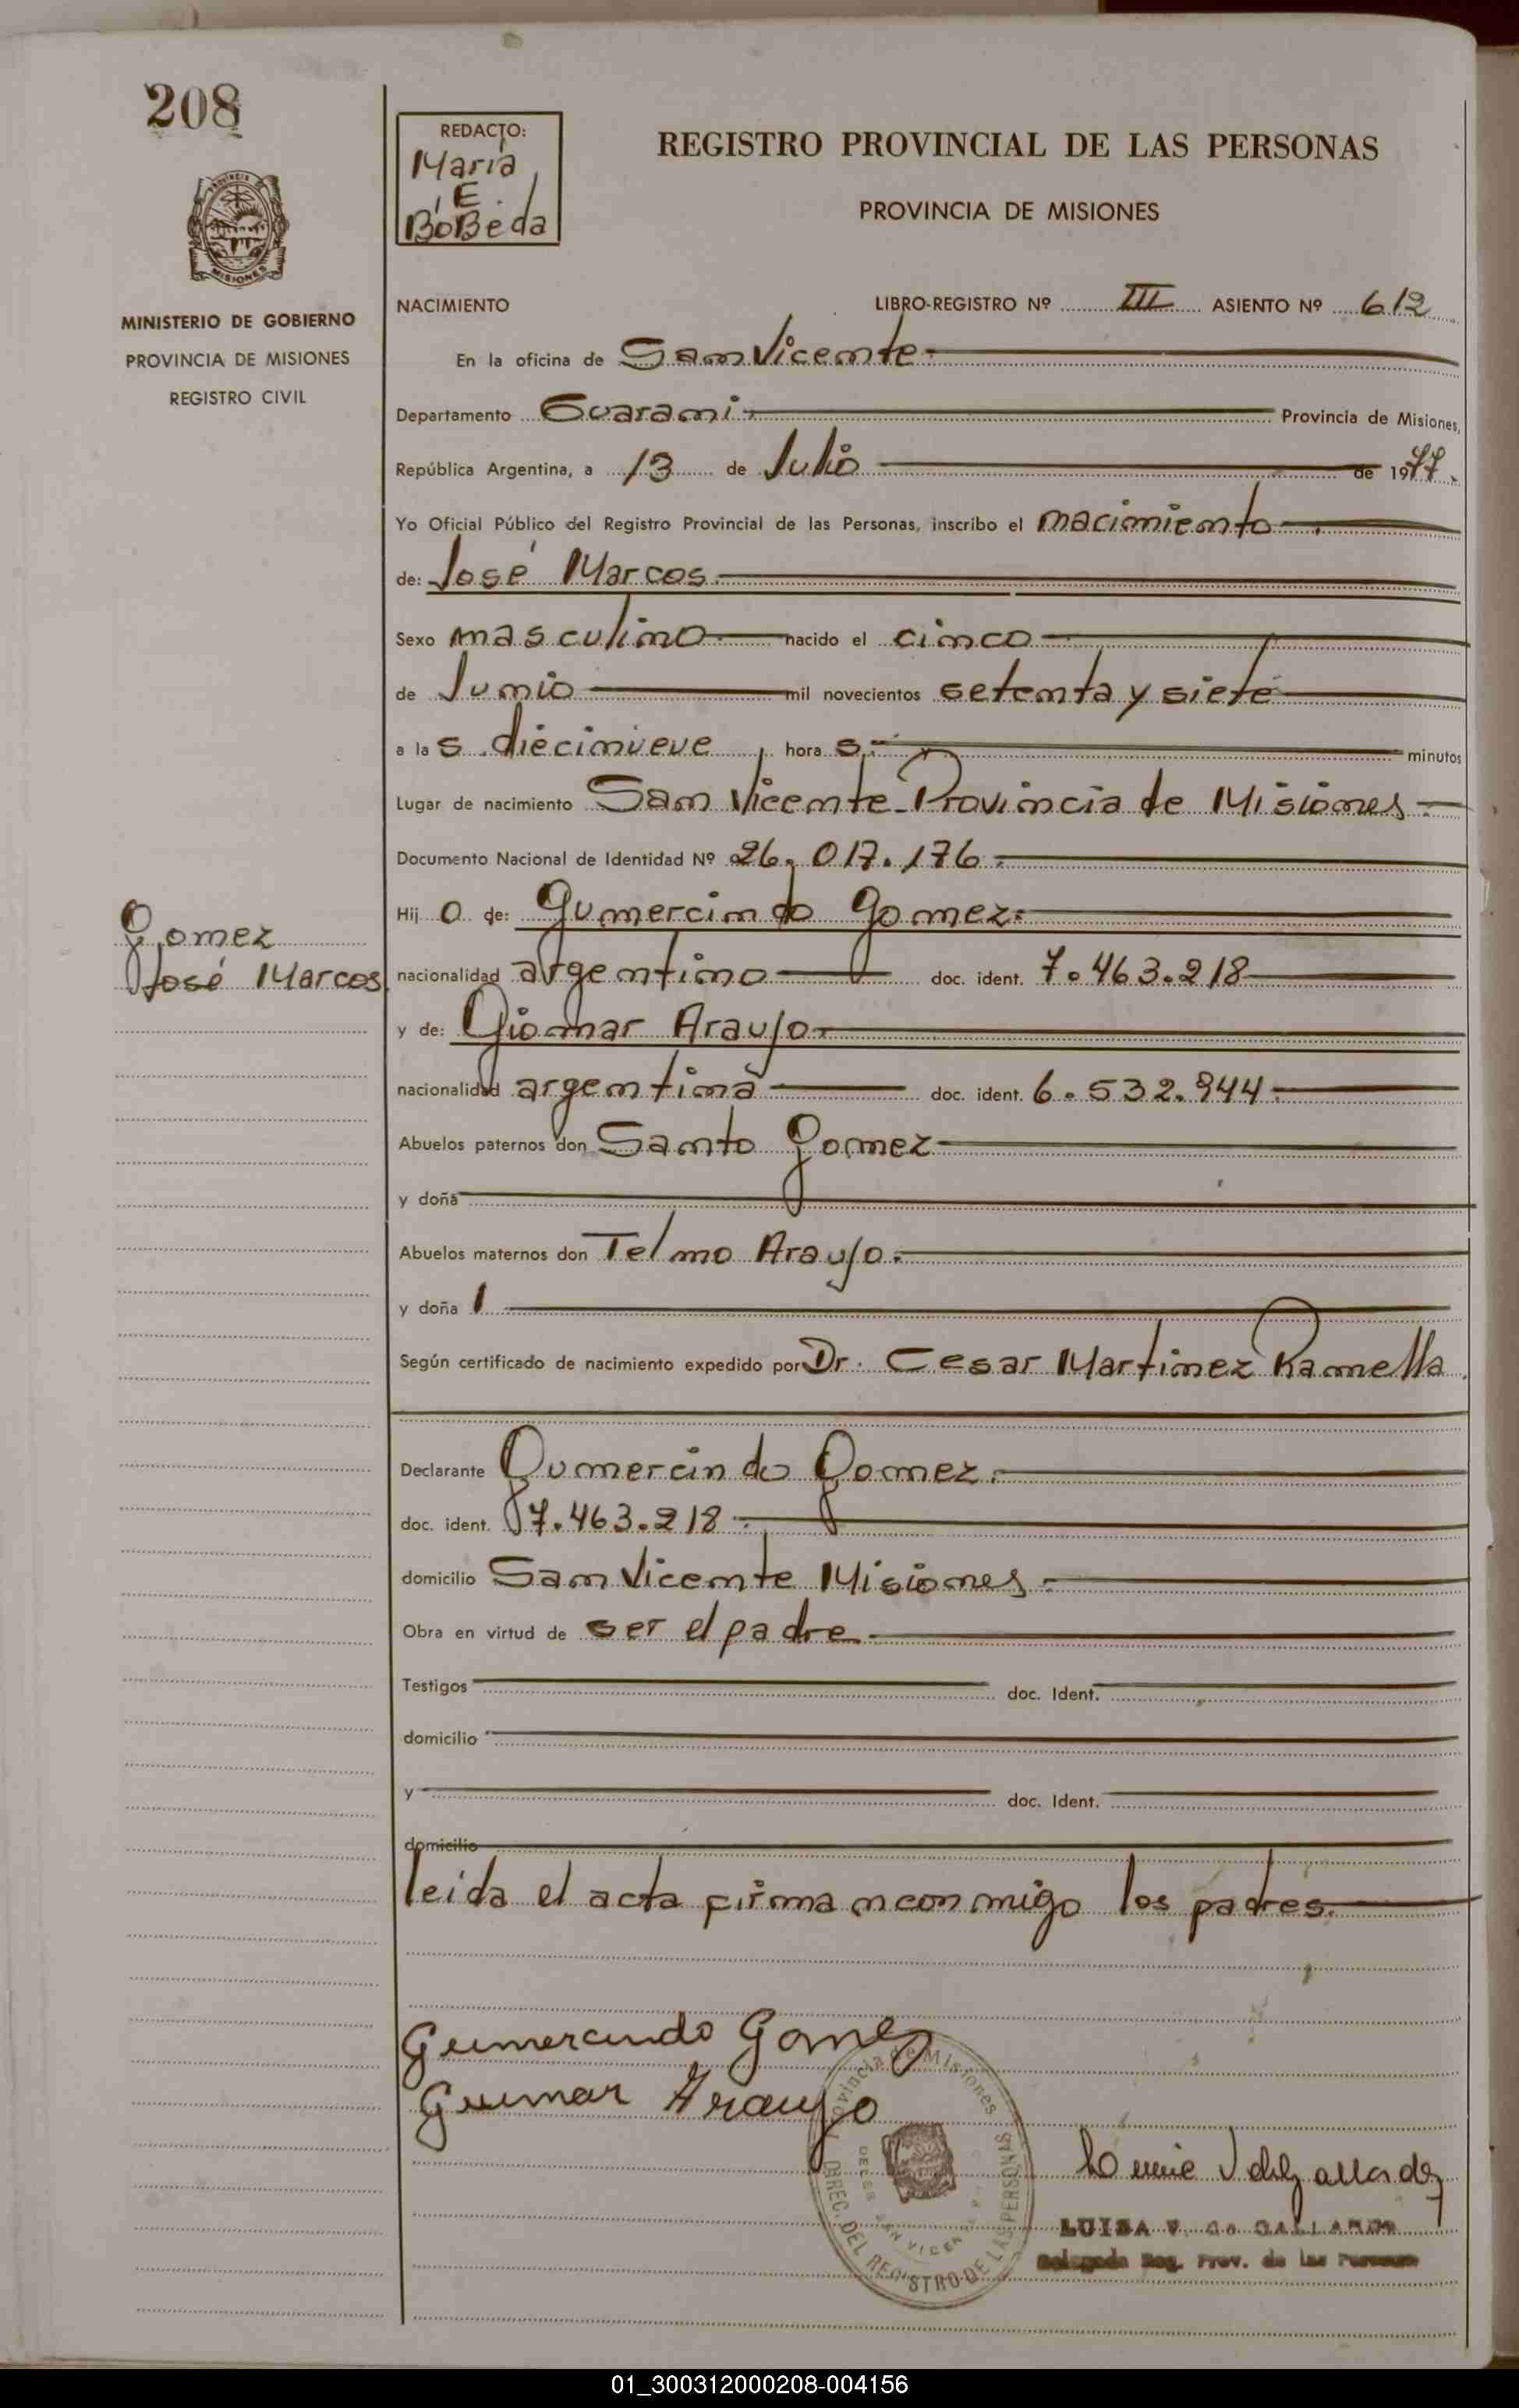 208
REDACTO:
Maria
E.
BoBeda
REGISTRO PROVINCIAL DE LAS PERSONAS
PROVINCIA DE MISIONES
PROVINCIA
MISIONES
MINISTERIO DE GOBIERNO
PROVINCIA DE MISIONES
REGISTRO CIVIL
NACIMIENTO LIBRO-REGISTRO Nº III ASIENTO Nº 612
En la oficina de San Vicente
Departamento Guarani Provincia de Misiones,
República Argentina, a 13 de Julio de 1977.
Yo Oficial Público del Registro Provincial de las Personas, inscribo el nacimiento
de: José Marcos
Sexo masculino nacido el cinco
de Junio mil novecientos setenta y siete
a las diecinueve horas minutos
Lugar de nacimiento San Vicente Provincia de Misiones
Documento Nacional de Identidad Nº 26.017.176
Hijo de: Gumercindo Gomez
Gomez
José Marcos
nacionalidad argentino doc. ident. 7.463.218
y de: Giomar Araujo
nacionalidad argentina doc. ident. 6.532.944
Abuelos paternos don Santo Gomez
y doña
Abuelos maternos don Telmo Araujo.
y doña
Según certificado de nacimiento expedido por Dr. Cesar Martinez Ramella
Declarante Gumercindo Gomez.
doc. ident. 7.463.218
domicilio San Vicente Misiones
Obra en virtud de ser el padre
Testigos doc. Ident.
domicilio
y doc. Ident.
domicilio
leida el acta firman conmigo los padres.
Gumercindo Gomez
Guimar Araujo
Provincia de Misiones
DIREC. DEL REGISTRO DE LAS PERSONAS
SAN VICENTE
LUISA V. de GALLARDO
Delegada Reg. Prov. de las Personas
01_300312000208-004156